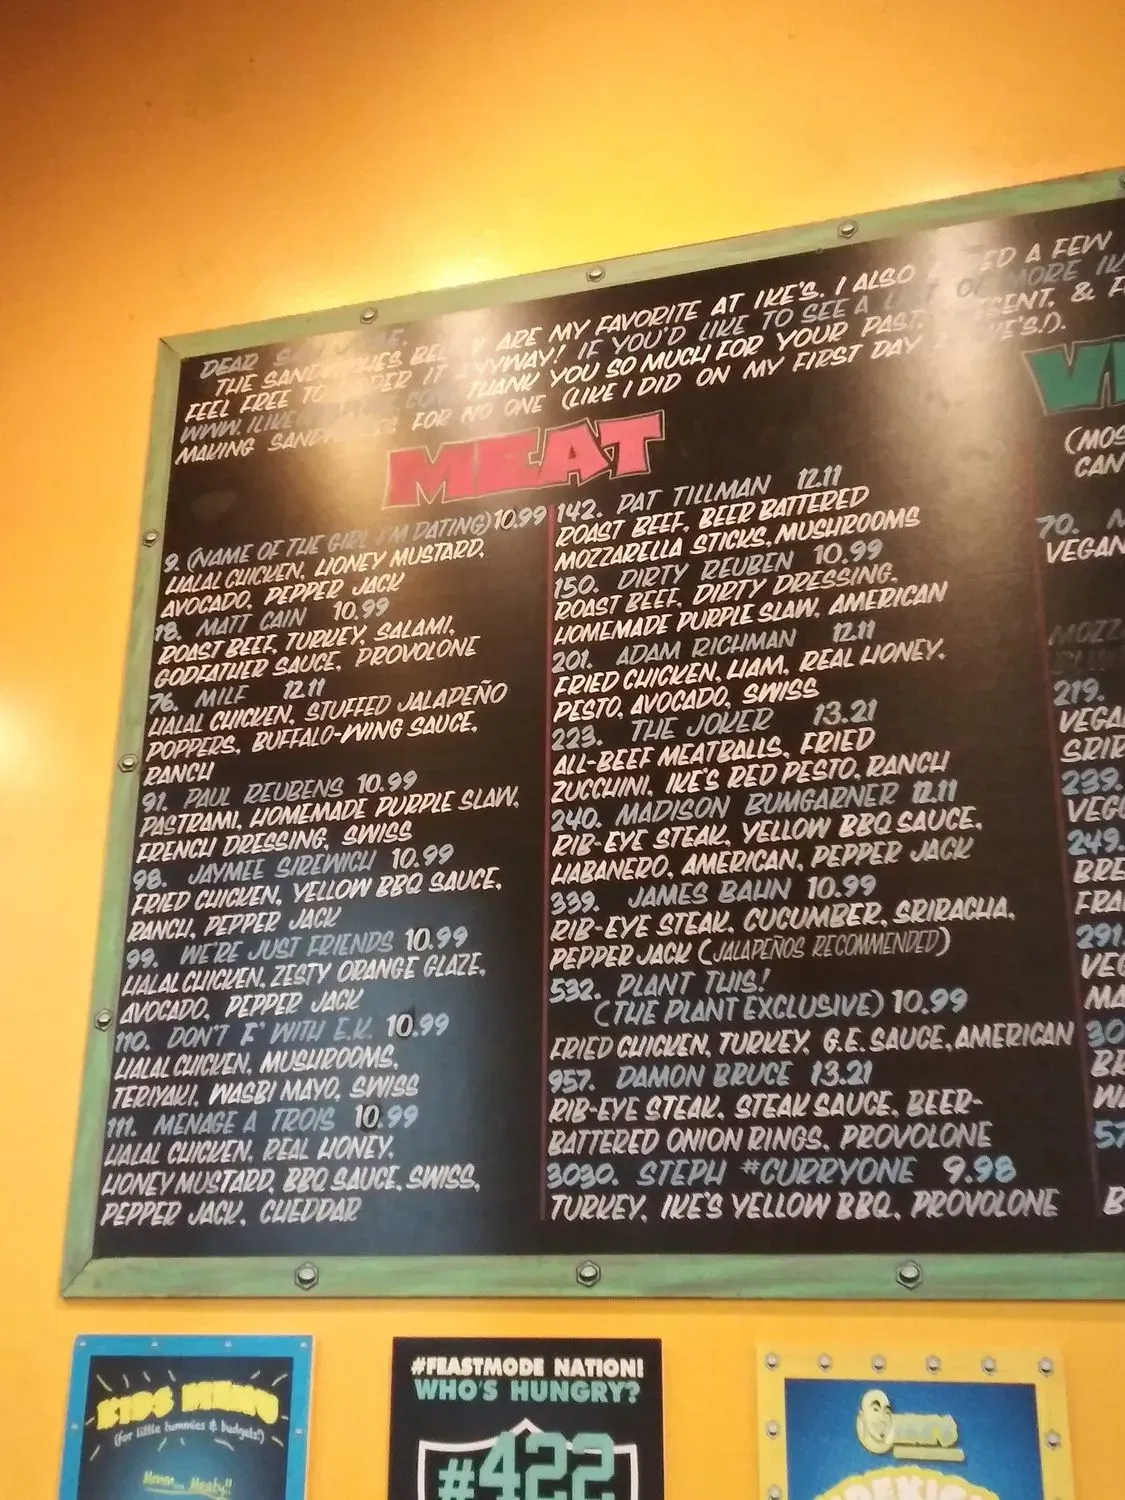 DEAR
THE SANDWICHES BELOW ARE MY FAVORITE AT IKE'S. I ALSO ADDED A FEW
FEEL FREE TO ORDER IT ANYWAY! IF YOU'D LIKE TO SEE A LIST OF MORE
WWW. THANK YOU SO MUCH FOR YOUR PAST, PRESENT, &
MAKING SANDWICHES FOR NO ONE (LIKE I DID ON MY FIRST DAY IKE'S!).
MEAT
9. (NAME OF THE GIRL I'M DATING) 10.99
HALAL CHICKEN, HONEY MUSTARD,
AVOCADO, PEPPER JACK
18. MATT CAIN 10.99
ROAST BEEF, TURKEY, SALAMI,
GODFATHER SAUCE, PROVOLONE
76. MILF 12.11
HALAL CHICKEN, STUFFED JALAPEÑO
POPPERS, BUFFALO-WING SAUCE,
RANCH
91. PAUL REUBENS 10.99
PASTRAMI, HOMEMADE PURPLE SLAW,
FRENCH DRESSING, SWISS
98. JAYMEE SIREWICH 10.99
FRIED CHICKEN, YELLOW BBQ SAUCE,
RANCH, PEPPER JACK
99. WE'RE JUST FRIENDS 10.99
HALAL CHICKEN, ZESTY ORANGE GLAZE,
AVOCADO, PEPPER JACK
110. DON'T F' WITH E.K. 10.99
HALAL CHICKEN, MUSHROOMS,
TERIYAKI, WASBI MAYO, SWISS
111. MENAGE A TROIS 10.99
HALAL CHICKEN, REAL HONEY,
HONEY MUSTARD, BBQ SAUCE, SWISS,
PEPPER JACK, CHEDDAR
142. PAT TILLMAN 12.11
ROAST BEEF, BEER BATTERED
MOZZARELLA STICKS, MUSHROOMS
150. DIRTY REUBEN 10.99
ROAST BEEF, DIRTY DRESSING,
HOMEMADE PURPLE SLAW, AMERICAN
201. ADAM RICHMAN 12.11
FRIED CHICKEN, HAM, REAL HONEY,
PESTO, AVOCADO, SWISS
223. THE JOKER 13.21
ALL-BEEF MEATBALLS, FRIED
ZUCCHINI, IKE'S RED PESTO, RANCH
240. MADISON BUMGARNER 12.11
RIB-EYE STEAK, YELLOW BBQ SAUCE,
HABANERO, AMERICAN, PEPPER JACK
339. JAMES BAHN 10.99
RIB-EYE STEAK, CUCUMBER, SRIRACHA,
PEPPER JACK (JALAPEÑOS RECOMMENDED)
532. PLANT THIS!
(THE PLANT EXCLUSIVE) 10.99
FRIED CHICKEN, TURKEY, G.E. SAUCE, AMERICAN
957. DAMON BRUCE 13.21
RIB-EYE STEAK, STEAK SAUCE, BEER-
BATTERED ONION RINGS, PROVOLONE
3030. STEPH #CURRYONE 9.98
TURKEY, IKE'S YELLOW BBQ, PROVOLONE
(MOS
CAN
70.
VEGAN
219.
VEGA
SRIR
239.
VEG
249.
BRE
FRA
291.
VEG
MA
30
BR
57
B
KIDS MENU
(for little tummies & budgets!)
Mmm... Meaty!!
#FEASTMODE NATION!
WHO'S HUNGRY?
#422